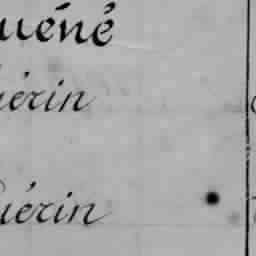 uéné
uérin
uérin